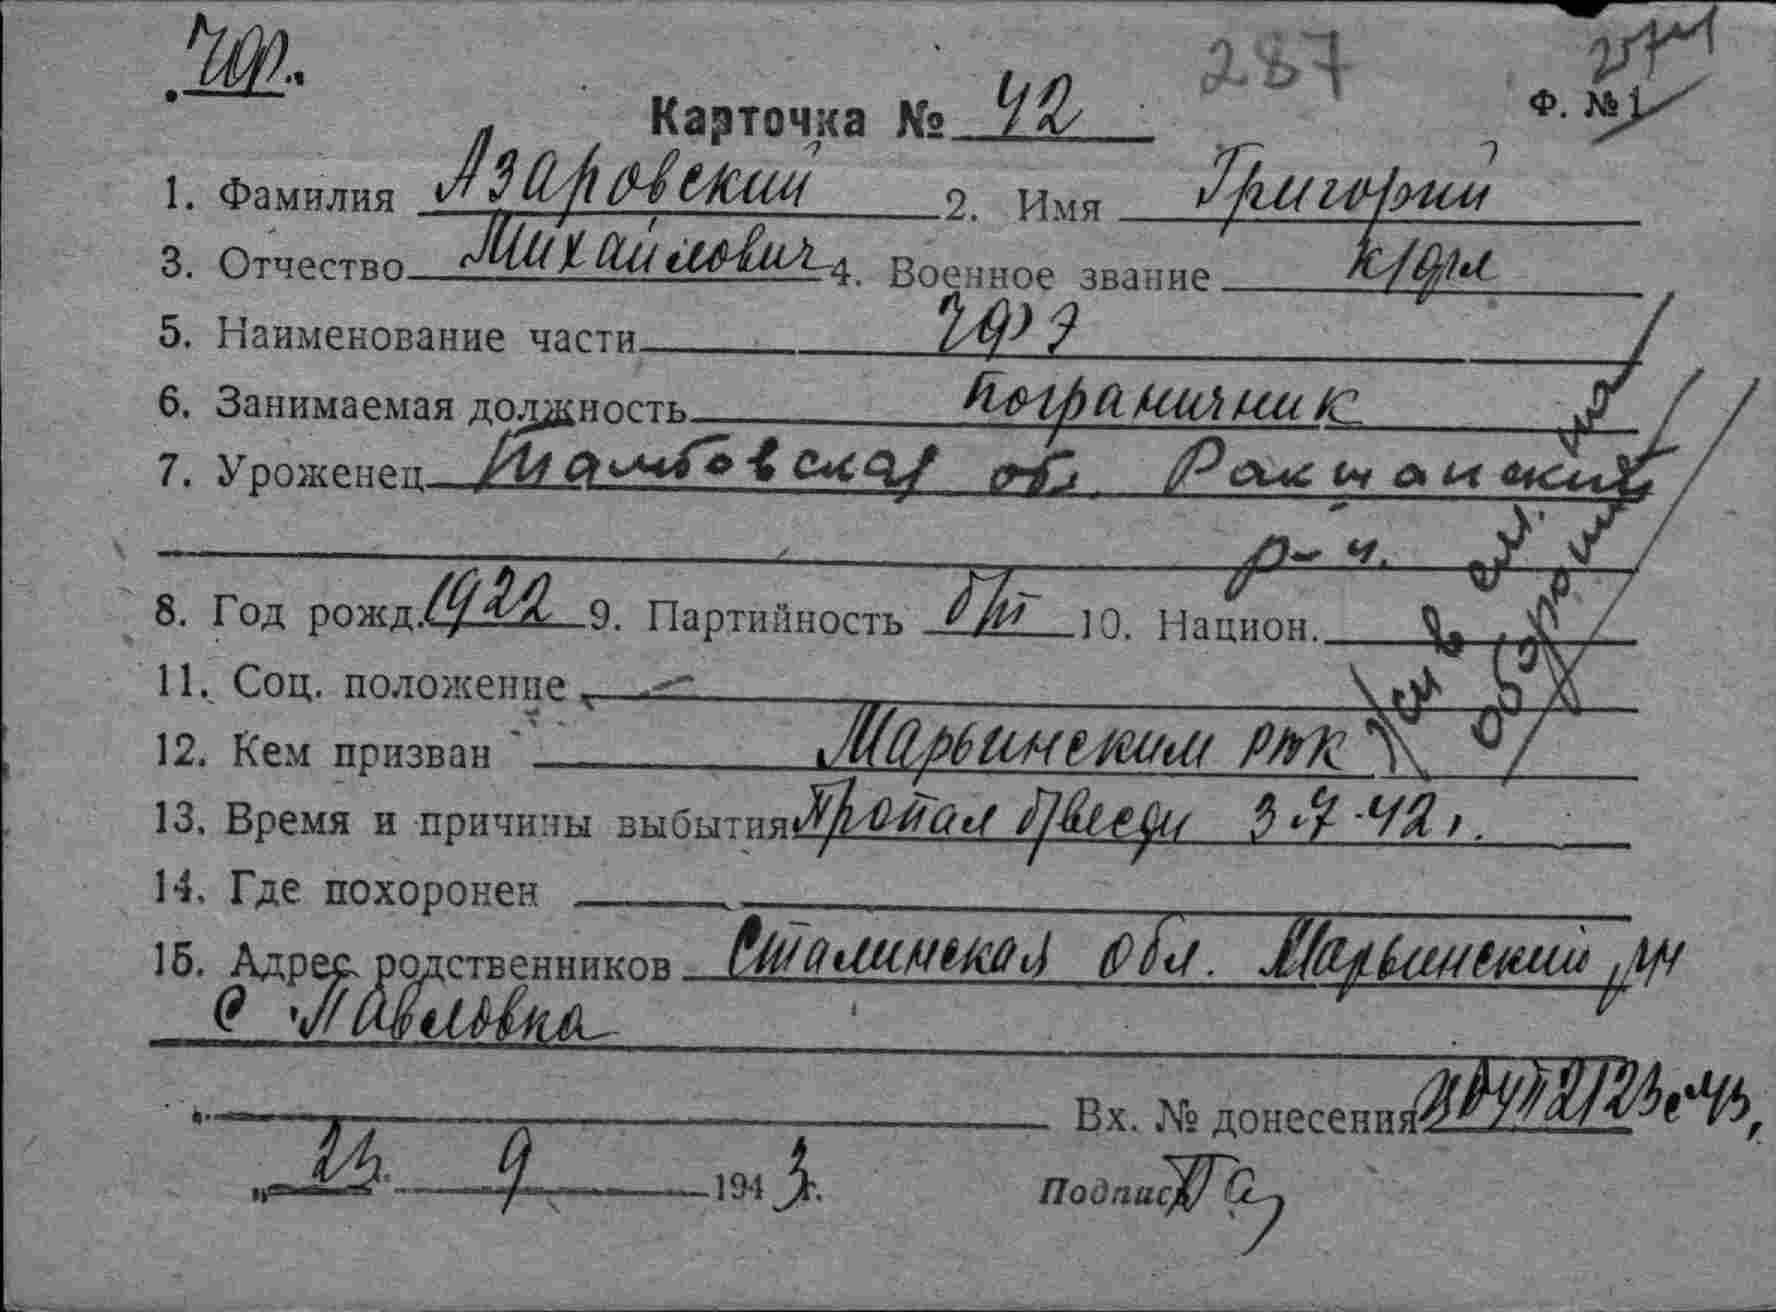 287
Карточка № 42 Ф. № 1
1. Фамилия Азаровский 2. Имя Григорий
3. Отчество Михайлович 4. Военное звание
5. Наименование части
6. Занимаемая должность пограничник
7. Уроженец Тамбовская обл. Ракшанский
р-н.
8. Год рожд. 1922 9. Партийность 10. Национ.
11. Соц. положение —
12. Кем призван Марьинским РВК
13. Время и причины выбытия Пропал 3.7.42 г.
14. Где похоронен
15. Адрес родственников Сталинская обл. Марьинский р-н
с Павловка
Вх. № донесения
„23 9 1943 г.
Подпись